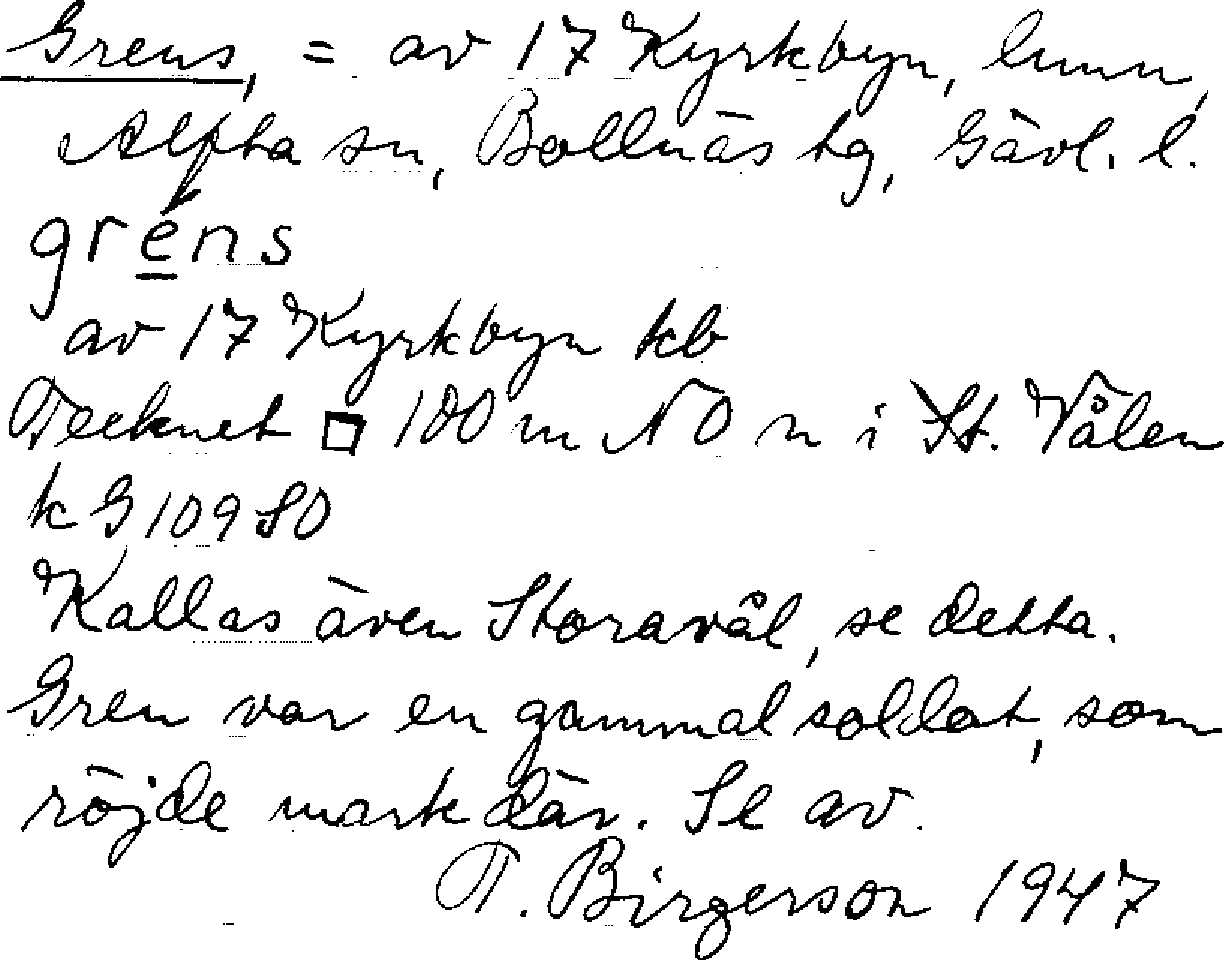 Grens, = av 17 Kyrkbyn, lunn,
Alfta sn, Bollnäs tg, Gävl. l.
gréns
av 17 Kyrkbyn kb
Tecknet □ 100 m NO n i St. Vålen
k G 109 SO
Kallas även Storavål, se detta.
Gren var en gammal soldat, som
röjde mark där. Se av.
T. Birgerson 1947